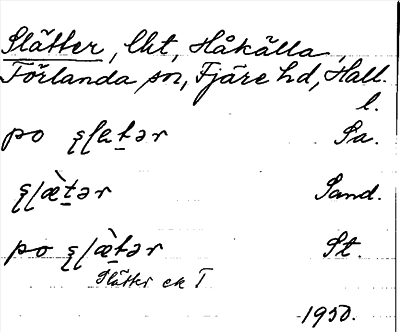 Slätter, lht, Håkälla,
Förlanda sn, Fjäre hd, Hall.
l.
po şlætər Sa.
şlæ̀tər Sand.
po şlæ̀tər St.
Slätter ek T
1950.